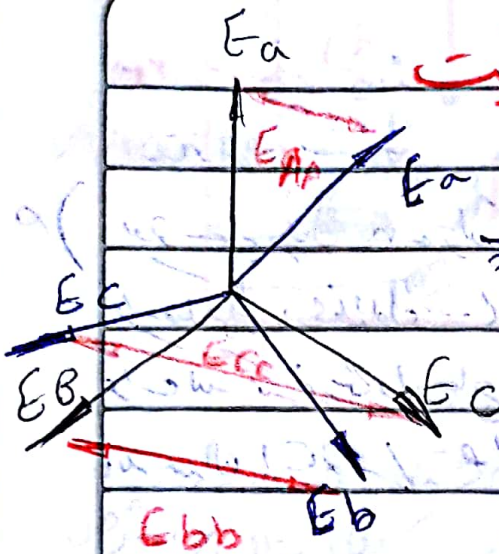 Ea
EAA
Ea
EC
Ecc
EB
EC
Eb
Ebb